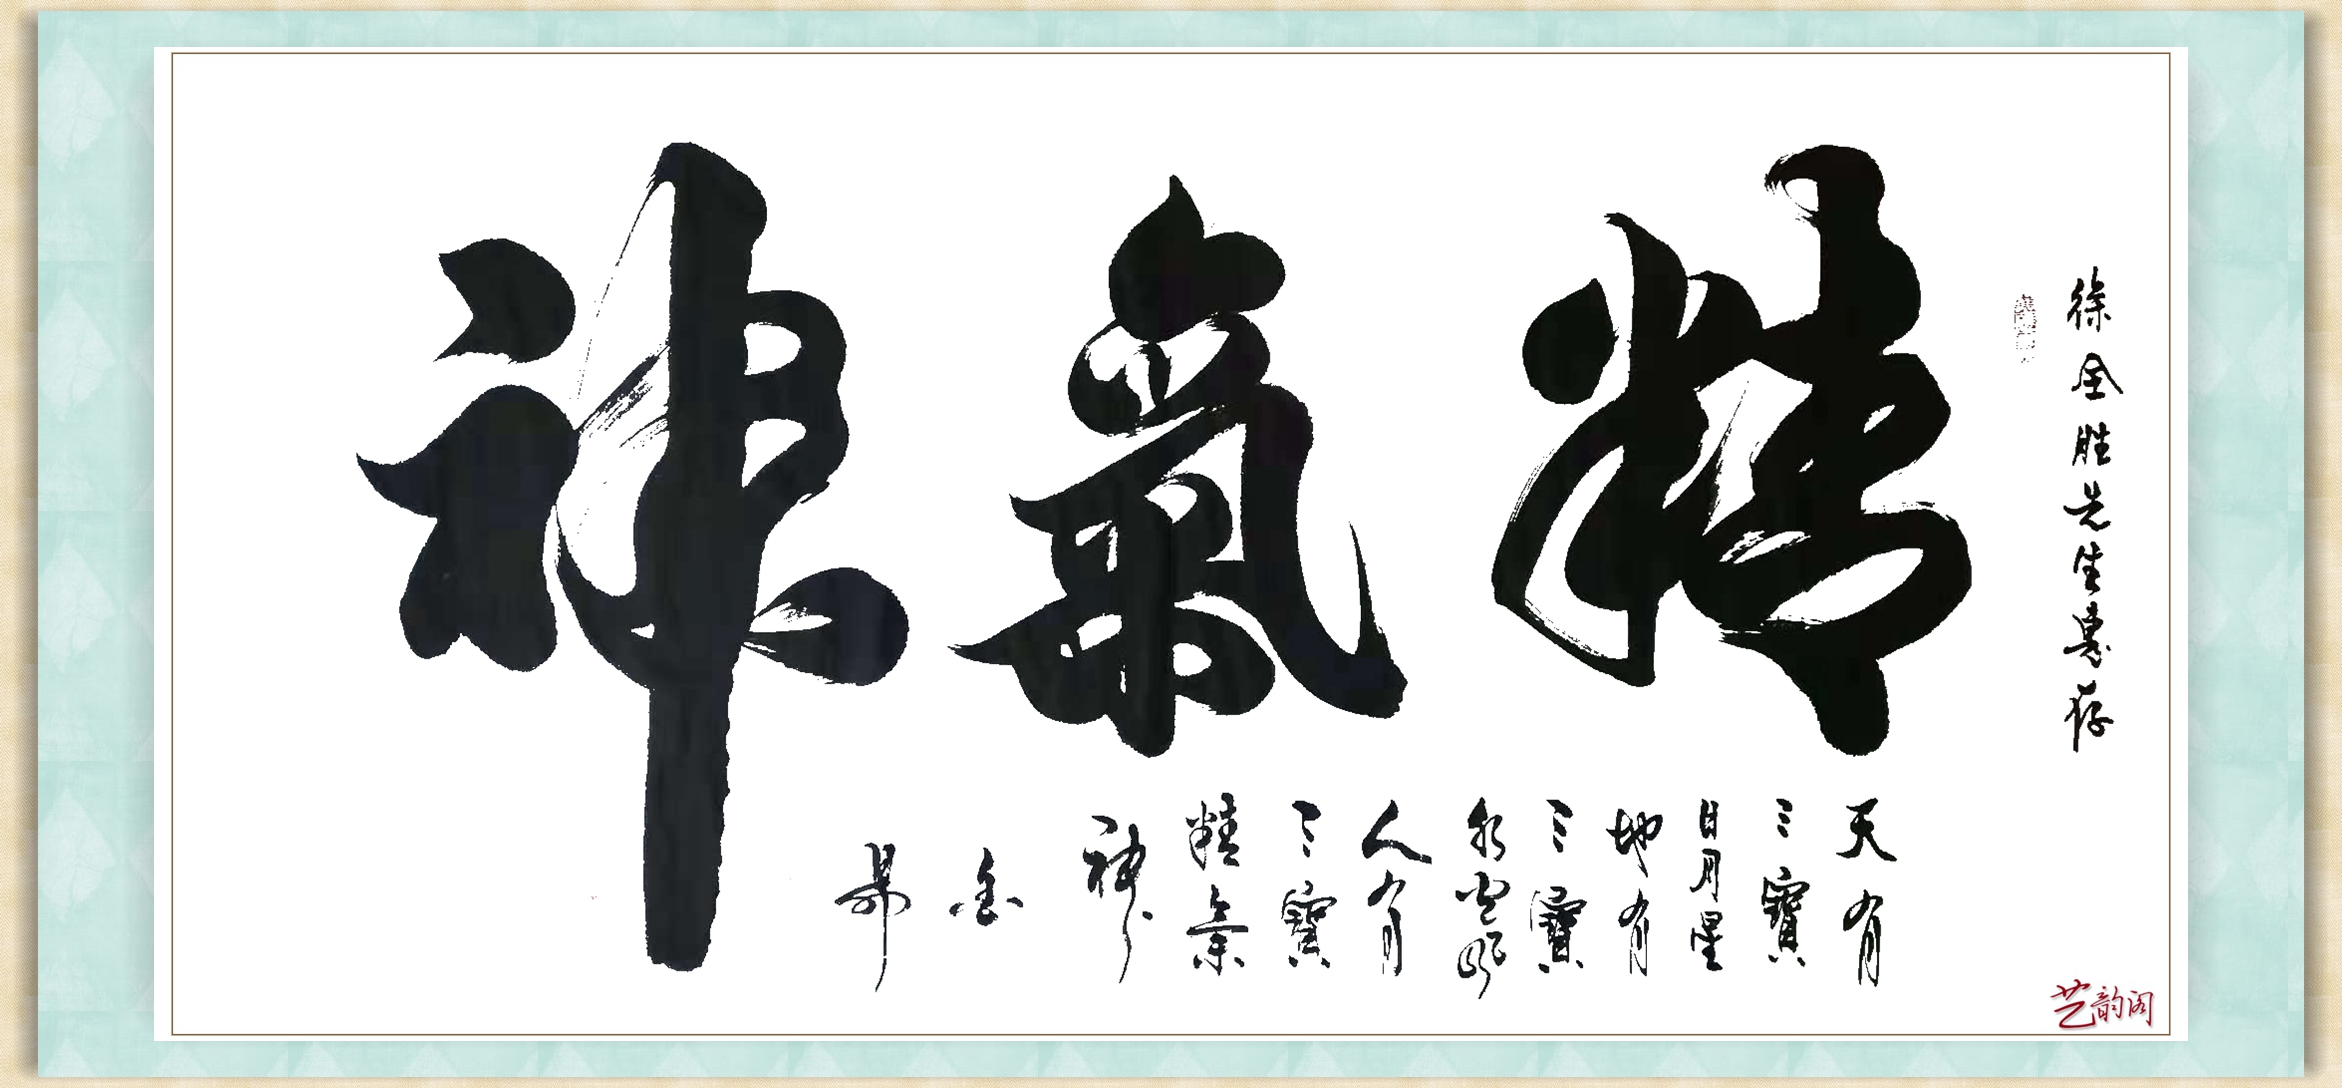 徐全胜先生惠存
精氣神
天有
三寶
日月星
地有
三寶
水火風
人有
三寶
精氣
神
艺韵阁